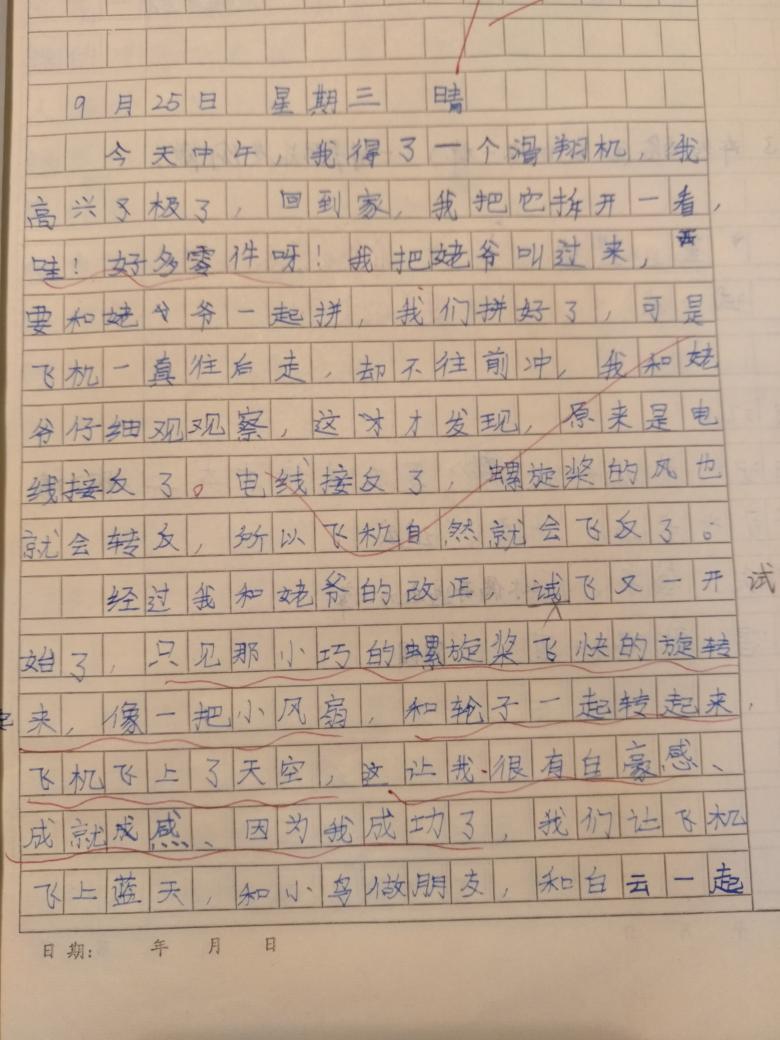 9月25日 星期三 晴
今天中午,我得了一个滑翔机,我
高兴了极了,回到家,我把它拆开一看,
哇!好多零件呀!我把姥爷叫过来,
要和姥爷爷一起拼,我们拼好了,可是
飞机一真往后走,却不往前冲,我和姥
爷仔细观观察,这才才发现,原来是电
线接反了。电线接反了,螺旋桨的风也
就会转反,所以飞机自然就会飞反了。
经过我和姥爷的改正,试飞又一开 试
始了,只见那小巧的螺旋桨飞快的旋转
起来,像一把小风扇,和轮子一起转起来,
飞机飞上了天空,这让我很有自豪感、
成就成感、因为我成功了,我们让飞机
飞上蓝天,和小鸟做朋友,和白云一起
日期: 年 月 日